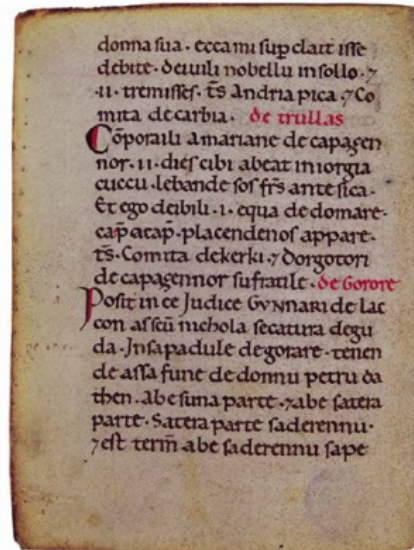 donna sua · ecca mi sup clait isse
debite · deiuili nobellu in sollo · ⁊
·ii· tremisses · ts Andria pica · ⁊ Co
mita de carbia · de trullas
Cōporaili a mariane de capagen
nor · ii · dies cibi abeat in iorgia
cuccu · lebande sos frs ante sica ·
Et ego deibili · i · equa de domare ·
cap̄ acap̄ · placendenos appare ·
ts · Comita dekerki · ⁊ Dorgotori
de capagennor su fratile · de Gorore
Posit in ce Judice GVNNARI de lac
con a scū nichola secatura degu
da · Jnsapadule degorare · tenen
de assa fune de donnu petru da
then · abesuna parte · ⁊abe satera
parte · Satera parte saderennu ·
⁊est term̄ abe saderennu sape